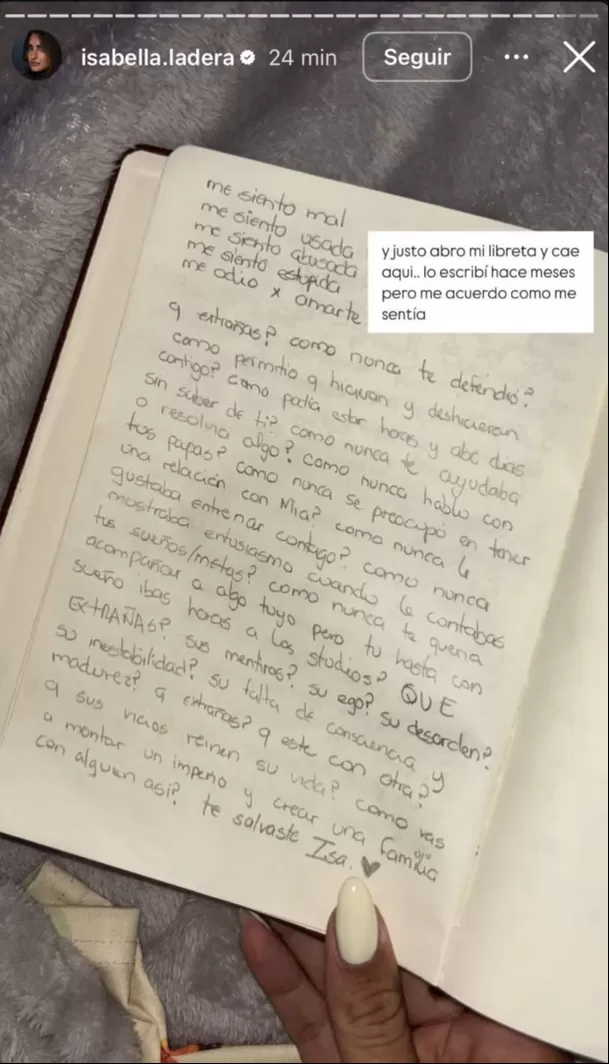 isabella.ladera 24 min Seguir
y justo abro mi libreta y cae
aqui.. lo escribí hace meses
pero me acuerdo como me
sentía
me siento mal
me siento usada
me siento abusada
me siento estupida
me odio x amarte
q extrañas? como nunca te defendió?
como permitio q hicieran y deshicieran
contigo? como podia estar horas y abc dias
sin saber de ti? como nunca te ayudaba
o resolvia algo? como nunca hablo con
tus papas? como nunca se preocupó en tener
una relación con Mia? como nunca le
gustaba entrenar contigo? como nunca
mostraba entusiasmo cuando le contabas
tus sueños/metas? como nunca te queria
acompañar a algo tuyo pero tu hasta con
sueño ibas horas a los studios? QUE
EXTRAÑAS? sus mentiras? su ego? su desorden?
su inestabilidad? su falta de consciencia y
madurez? q extrañas? q este con otra?
q sus vicios reinen su vida? como vas
a montar un imperio y crear una familia
con alguien asi? te salvaste Isa. ♥